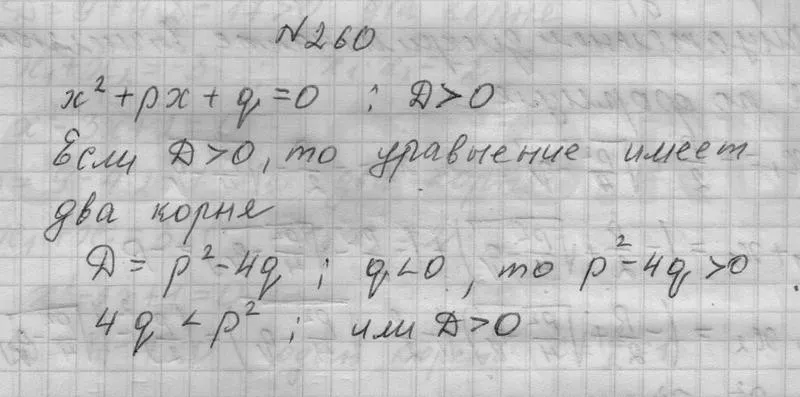 №260
x² + px + q = 0 ; D > 0
Если D > 0, то уравнение имеет
два корня
D = p² - 4q ; q < 0, то p² - 4q > 0
4q < p² ; или D > 0